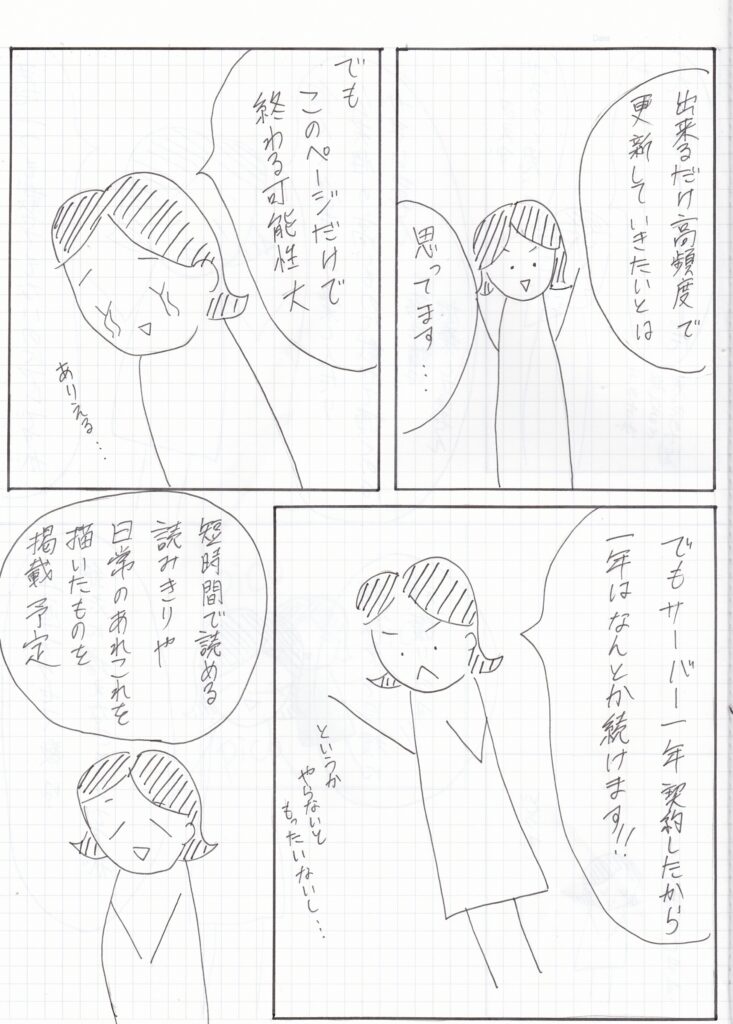 出来るだけ高頻度で
更新していきたいとは
思ってます…
でも
このページだけで
終わる可能性大
ありえる…
でもサーバー一年契約したから
一年はなんとか続けます!!
というか
やらないと
もったいないし…
短時間で読める
読みきりや
日常のあれこれを
描いたものを
掲載予定